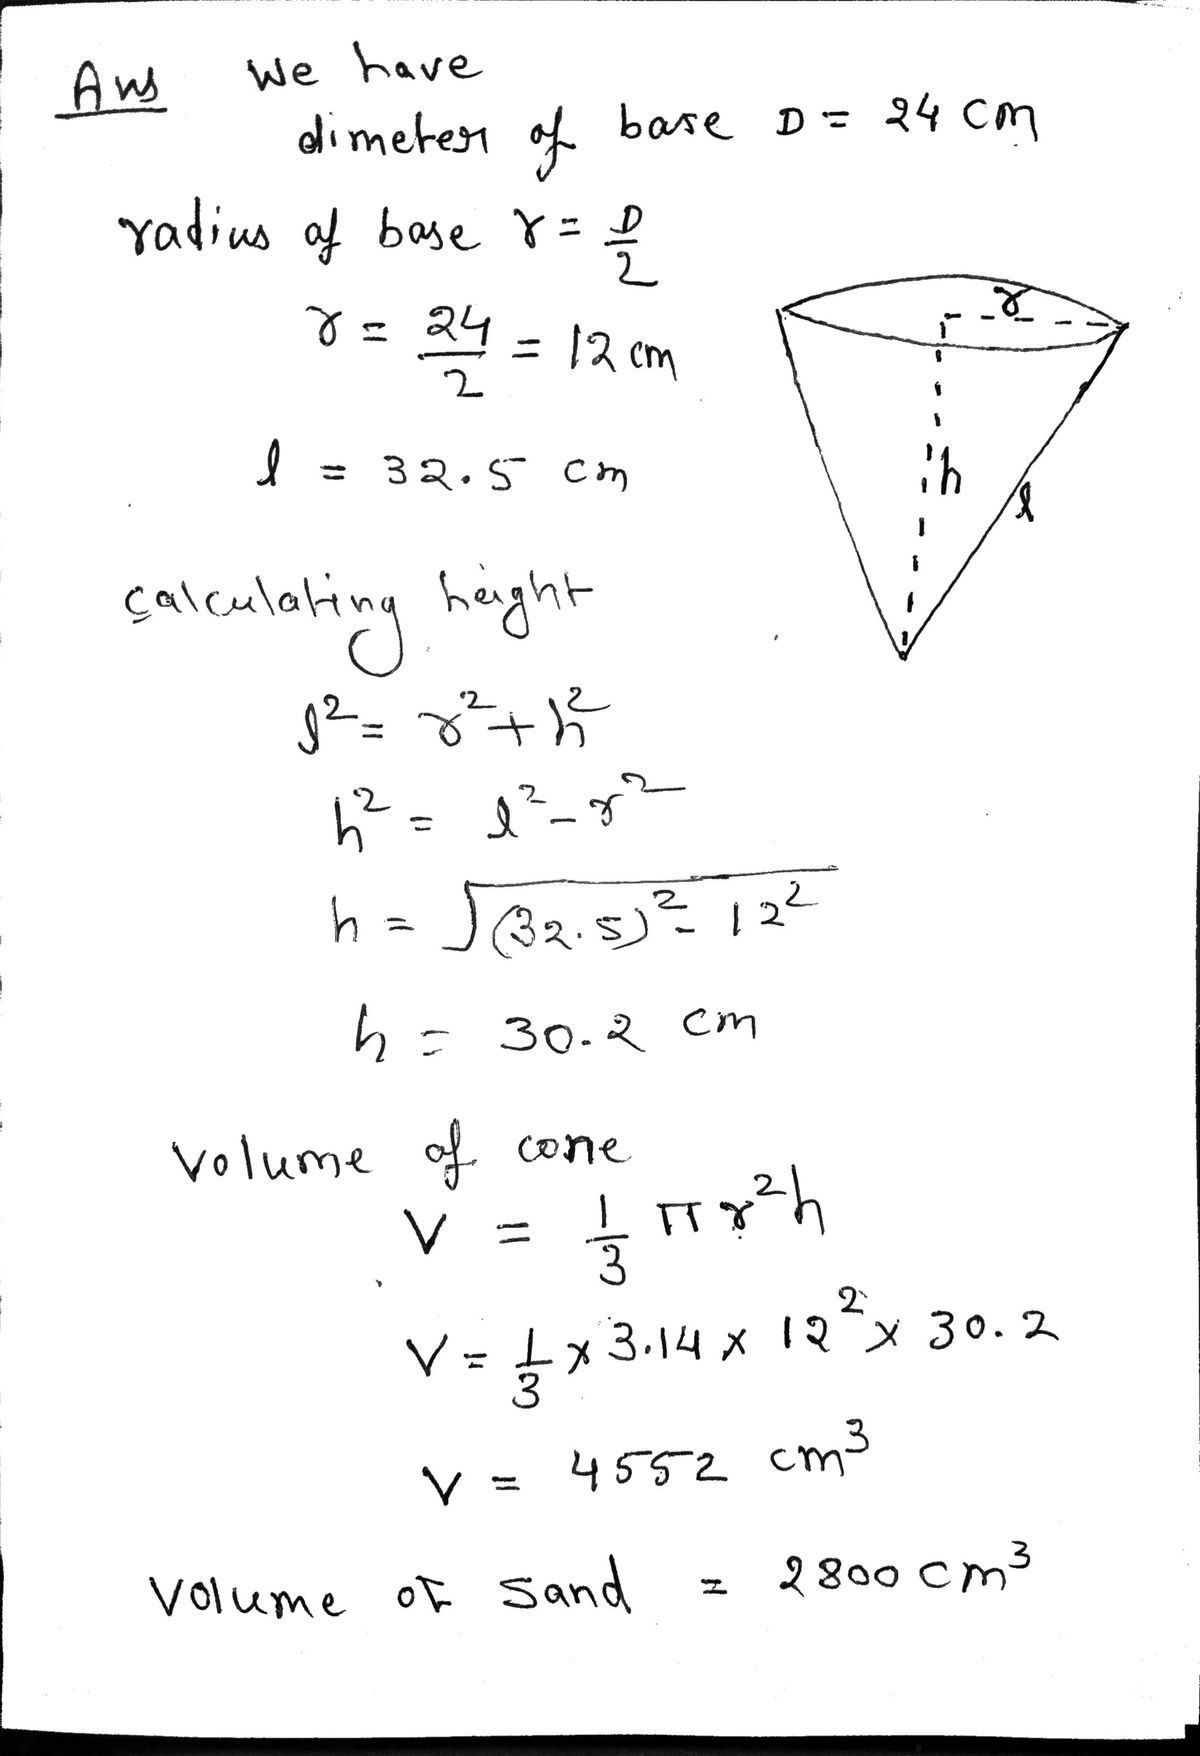 Ans We have
dimeter of base D = 24 cm
radius of base r = D/2
r = 24/2 = 12 cm
r
l = 32.5 cm
h
l
calculating height
l² = r² + h²
h² = l² - r²
h = √(32.5)² - 12²
h = 30.2 cm
Volume of cone
V = 1/3 π r²h
V = 1/3 × 3.14 × 12² × 30.2
V = 4552 cm³
Volume of Sand = 2800 cm³